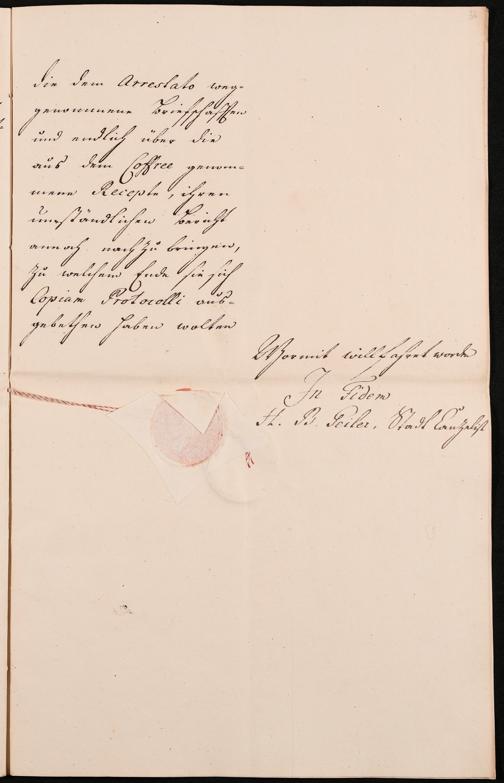 die dem Arrestato weg-
genommene Briefschafften
und endlich über die
aus dem Coffree genom-
mene Recepte, ihren
umständlichen Bericht
annoch nach zu bringen,
zu welchem Ende sie sich
Copiam Protocolli aus-
gebethen haben wolten
Wormit willfahret worden
In Fidem
H. B. Peiler, Stadt Canzelist